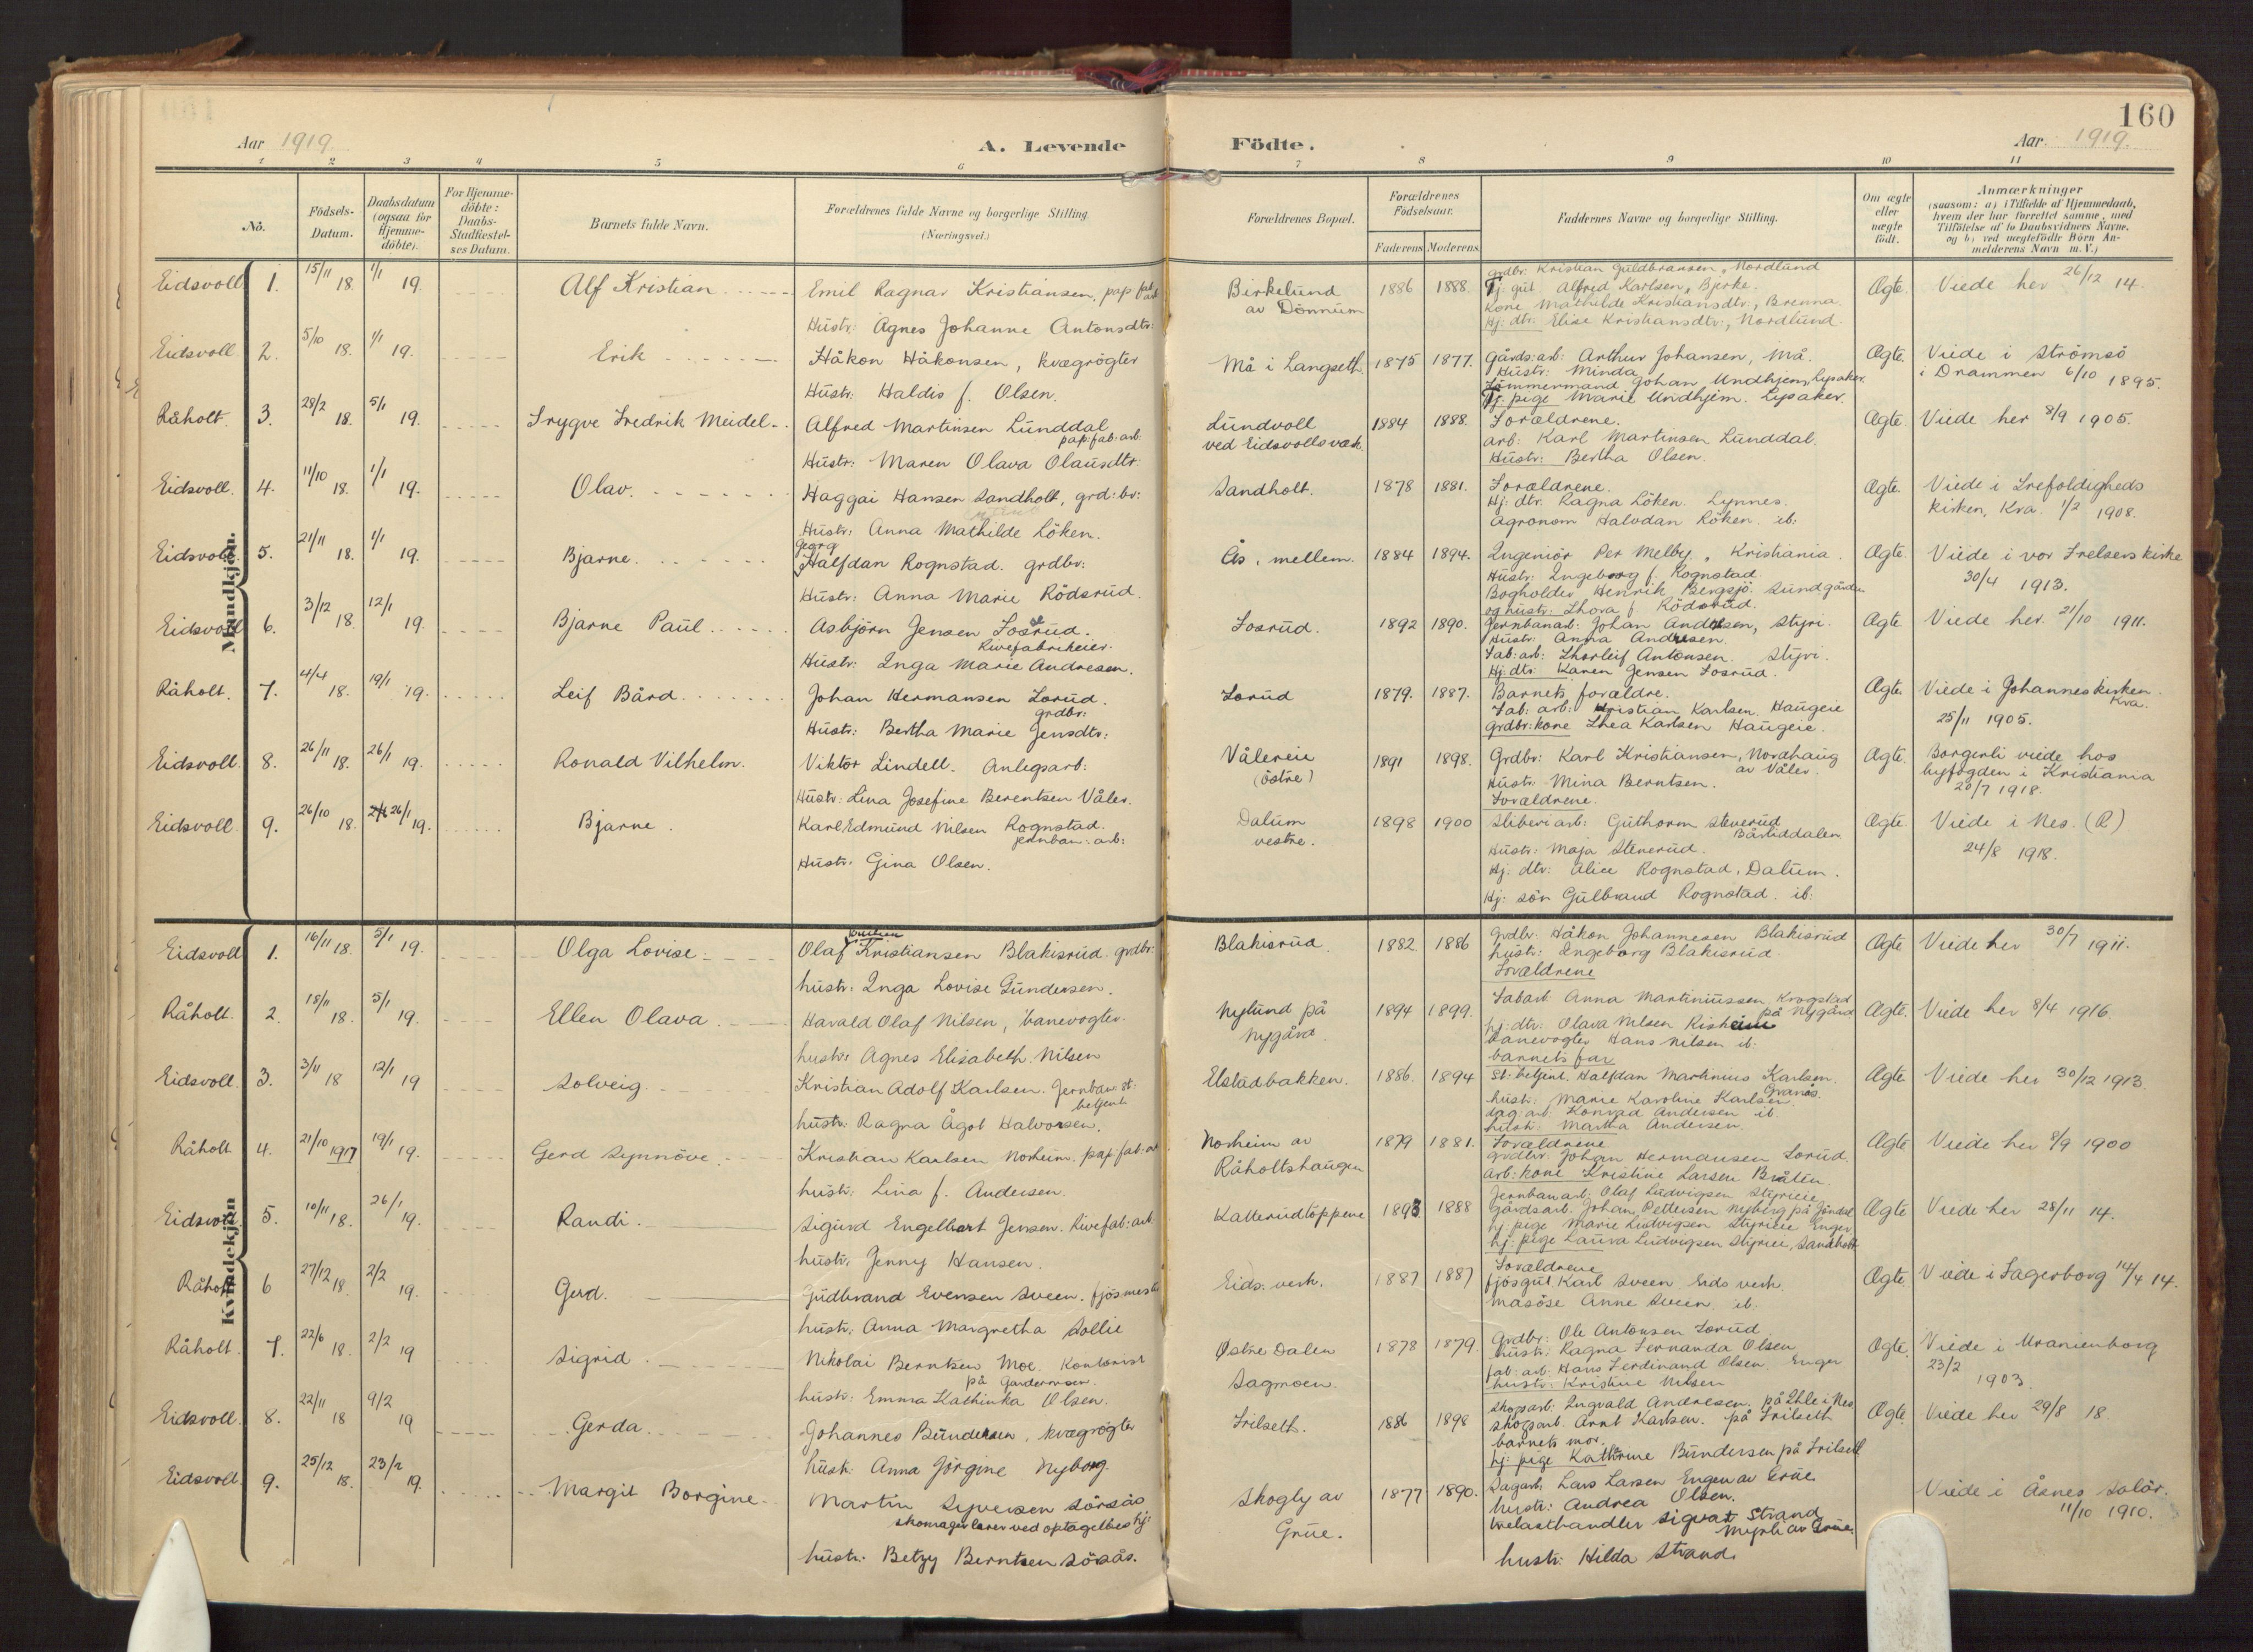 160
Aar 1919
A. Levende Födte.
Aar. 1919.
1 2 3 4 5 6 7 8 9 10 11
No.
Födsels-Datum.
Daabsdatum (ogsaa for Hjemme-döbte).
For Hjemme-döbte: Daabs-Stadfæstel-ses Datum.
Barnets fulde Navn.
Forældrenes fulde Navne og borgerlige Stilling.
(Næringsvei.)
Forældrenes Bopæl.
Forældrenes Födselsaar.
Faderens. Moderens.
Faddernes Navne og borgerlige Stilling.
Om ægte eller uægte födt.
Anmærkninger
(saasom: a) i Tilfælde af Hjemmedaab, hvem der har forrettet samme, med Tilföielse af to Daabsvidners Navne, og b) ved uægtefödte Börn An-melderens Navn m. V.)
Mandkjön.
Eidsvoll 1. 15/11 18. 1/1 19. Alf Kristian
Emil Ragnar Kristiansen, pap fab arb
Hustr: Agnes Johanne Antonsdtr:
Birkelund av Dönnum
1886 1888.
grdbr: Kristian Guldbransen, Nordlund
Tj. gut Alfred Karlsen, Bjerke.
Kone Mathilde Kristiansdtr:, Brenna.
Hj: dtr: Elise Kristiansdtr:, Nordlund.
Ægte. Viede her 26/12 14.
Eidsvoll 2. 5/10 18. 1/1 19. Erik
Håkon Håkonsen, kvægrögter
Hustr: Haldis f. Olsen.
Må i Langseth. 1875 1877.
Gårds:arb: Arthur Johansen, Må.
Hustr: Minda
Tömmermand Johan Undhjem, Lysaker.
Tj. pige Marie Undhjem. Lysaker.
Ægte. Viede i Strömsö
i Drammen 6/10 1895.
Råholt. 3. 28/2 18. 5/1 19. Trygve Fredrik Meidel
Alfred Martinsen Lunddal
pap:fab:arb:
Hustr: Maren Olava Olausdtr:
Lundvoll
ved Eidsvolls værk.
1884 1888.
Forældrene.
arb: Karl Martinsen Lunddal.
Hustr: Bertha Olsen.
Ægte. Viede her 8/9 1905.
Eidsvoll. 4. 11/10 18. 1/1 19. Olav.
Haggai Hansen Sandholt, grd:br:
Hustr: Anna Mathilde Löken.
Sandholt. 1878 1881.
Forældrene.
Hj: dtr: Ragna Löken. Lynnes.
Agronom Halvdan Löken. ib:
Ægte. Viede i Trefoldigheds
kirken, Kra. 1/2 1908.
Eidsvoll. 5. 21/11 18. 1/1 19. Bjarne.
Georg
Halfdan Rognstad. grdbr:
Hustr: Anna Marie Rödsrud.
Ås, mellem. 1884 1894.
Ingeniör Per Melby, Kristiania.
Hustr: Ingeborg f. Rognstad.
Bogholder Henrik Bergsjö. Sundgården
og hustr: Thora f. Rödsrud.
Ægte. Viede i vor Frelsers kirke
30/4 1913.
Eidsvoll 6. 3/12 18. 12/1 19. Bjarne Paul
Asbjörn Jensen Fosrud.
Rivefabrikeier.
Hustr: Inga Marie Andresen.
Fosrud. 1892 1890.
Jernbanarb: Johan Andresen, Styri.
Hustr: Anna Andresen.
Fab:arb: Thorleif Antonsen. Styri.
Hj: dtr: Karen Jensen Fosrud.
Ægte Viede her. 21/10 1911.
Råholt. 7. 4/4 18. 19/1 19. Leif Bård.
Johan Hermansen Lorud.
grdbr:
Hustr: Bertha Marie Jensdtr:
Lorud 1879. 1887.
Barnets forældre.
Fab: arb: Kristian Karlsen Haugeie
Grdbr:kone Thea Karlsen Haugeie.
Ægte. Viede i Johanneskirken.
Kra.
25/11 1905.
Eidsvoll. 8. 26/11 18. 26/1 19. Ronald Vilhelm.
Viktor Lindell. Anlegsarb:
Hustr: Lina Josefine Berentsen Våler.
Vålereie
(östre)
1891 1898.
Grdbr: Karl Kristiansen, Nordhaug
av Våler.
Hustr: Mina Berntsen.
Forældrene.
Ægte. Borgerli viede hos
byfogden i Kristiania
20/7 1918.
Eidsvoll 9. 26/10 18. 26/1 19. Bjarne.
Karl Edmund Nilsen Rognstad.
jernban: arb:
Hustr: Gina Olsen.
Dalum
vestre.
1898 1900
Sliberiarb: Guthorm Steverud
Bårliddalen
Hustr: Maja Steverud.
Hj: dtr: Alice Rognstad, Dalum.
Hj: sön Gulbrand Rognstad. ib:
Ægte Viede i Nes. (R)
24/8 1918.
Kvindekjön
Eidsvoll 1. 16/11 18. 5/1 19. Olga Lovise
Olaf Kristiansen Blakisrud. grdbr:
hustr: Inga Lovise Gundersen.
Blakisrud. 1882 1886
grdbr: Håkon Johannesen Blakisrud
hustr: Ingeborg Blakisrud.
Forældrene
Ægte Viede her 30/7 1911.
Råholt. 2. 18/11 18. 5/1 19. Ellen Olava
Harald Olaf Nilsen, banevogter.
hustr: Agnes Elisabeth Nilsen
Nylund på
Nygård.
1894 1899.
Fabarb. Anna Martiniussen, Krogstad
på Nygård
hj: dtr: Olava Nilsen Risheim
banevogter Hans Nilsen ib:
barnets far
Ægte. Viede her 8/4 1916.
Eidsvoll. 3. 3/11 18 12/1 19 Solveig
Kristian Adolf Karlsen. Jernban: st:
betjent
hustr: Ragna Ågot Halvorsen.
Elstadbakken. 1886. 1894
St: betjent. Halfdan Martinius Karlsen.
Granås.
hustr: Marie Karoline Karlsen.
dag:arb: Konrad Andersen ib.
hustr: Martha Andersen.
Ægte Viede her 30/12 1913.
Råholt 4. 21/10 1917 19/1 19. Gerd Synnöve.
Kristian Karlsen Norheim. pap fab: arb
hustr: Lina f. Andersen.
Norheim av
Råholtshaugen
1879 1881.
Forældrene
Grdbr: Johan Hermansen Lorud.
arb: kone Kristine Larsen Bråten.
Ægte Viede her 8/9 1900
Eidsvoll. 5. 10/11 18. 26/1 19. Randi.
Sigurd Engelbert Jensen. Rivefab:arb.
hustr: Jenny Hansen.
Katterudtoppene 1893 1888
Jernbanarb: Olaf Ludvigsen Styrieie
Gårdsarb. Johan Pettersen Nyberg på Jöndal
hj: pige Marie Ludvigsen Styrieie Enger
hj: pige Laura Ludvigsen Styriei, Sandholt
Ægte Viede her 28/11 14.
Råholt 6 27/12 18. 2/2 19. Gerd.
Gudbrand Evensen Sveen. fjösmester
hustr: Anna Margretha Sollie
Eids. verk. 1887 1887
Forældrene
fjösgut Karl Sveen Eids verk
Masöse Anne Sveen ib.
Ægte Viede i Fagerborg 14/4 14.
Råholt. 7. 22/6 18. 2/2 19 Sigrid.
Nikolai Berntsen Moe. Kontorist
på Gardermoen.
hustr: Emma Kathinka Olsen.
Østre Dalen
Sagmoen.
1878 1879.
Grdbr: Ole Antonsen Lorud
hustr: Ragna Fernanda Olsen
fab: arb: Hans Ferdinand Olsen. Enger
hustr: Kristine Nilsen
Ægte. Viede i Uranienborg
23/2 1903.
Eidsvoll. 8. 22/11 18 9/2 19 Gerda.
Johannes Bundersen, kvægrögter
hustr: Anna Jörgine Nyborg.
Frilseth. 1886 1898
Skogsarb. Ingvald Andresen. på Ihle i Nes.
skogsarb. Arnt Karlsen. på Frilseth
barnets mor.
hj: pige Kathrine Bundersen på Frilseth
Ægte. Viede her 29/8 18.
Eidsvoll. 9. 25/12 18. 23/2 19. Margit Borgine
Martin Syversen Sörsås
skomagerlærer ved optagelses hj:
hustr: Betzy Berntsen Sörsås.
Skogly av
Grue.
1877 1890.
Sagarb. Lars Larsen Engen av Grue
hustr: Andrea Olsen.
trelasthandler Sigvat Strand
Myrli av Grue.
hustr: Hilda Strand.
Viede i Åsnes Solör.
11/10 1910.